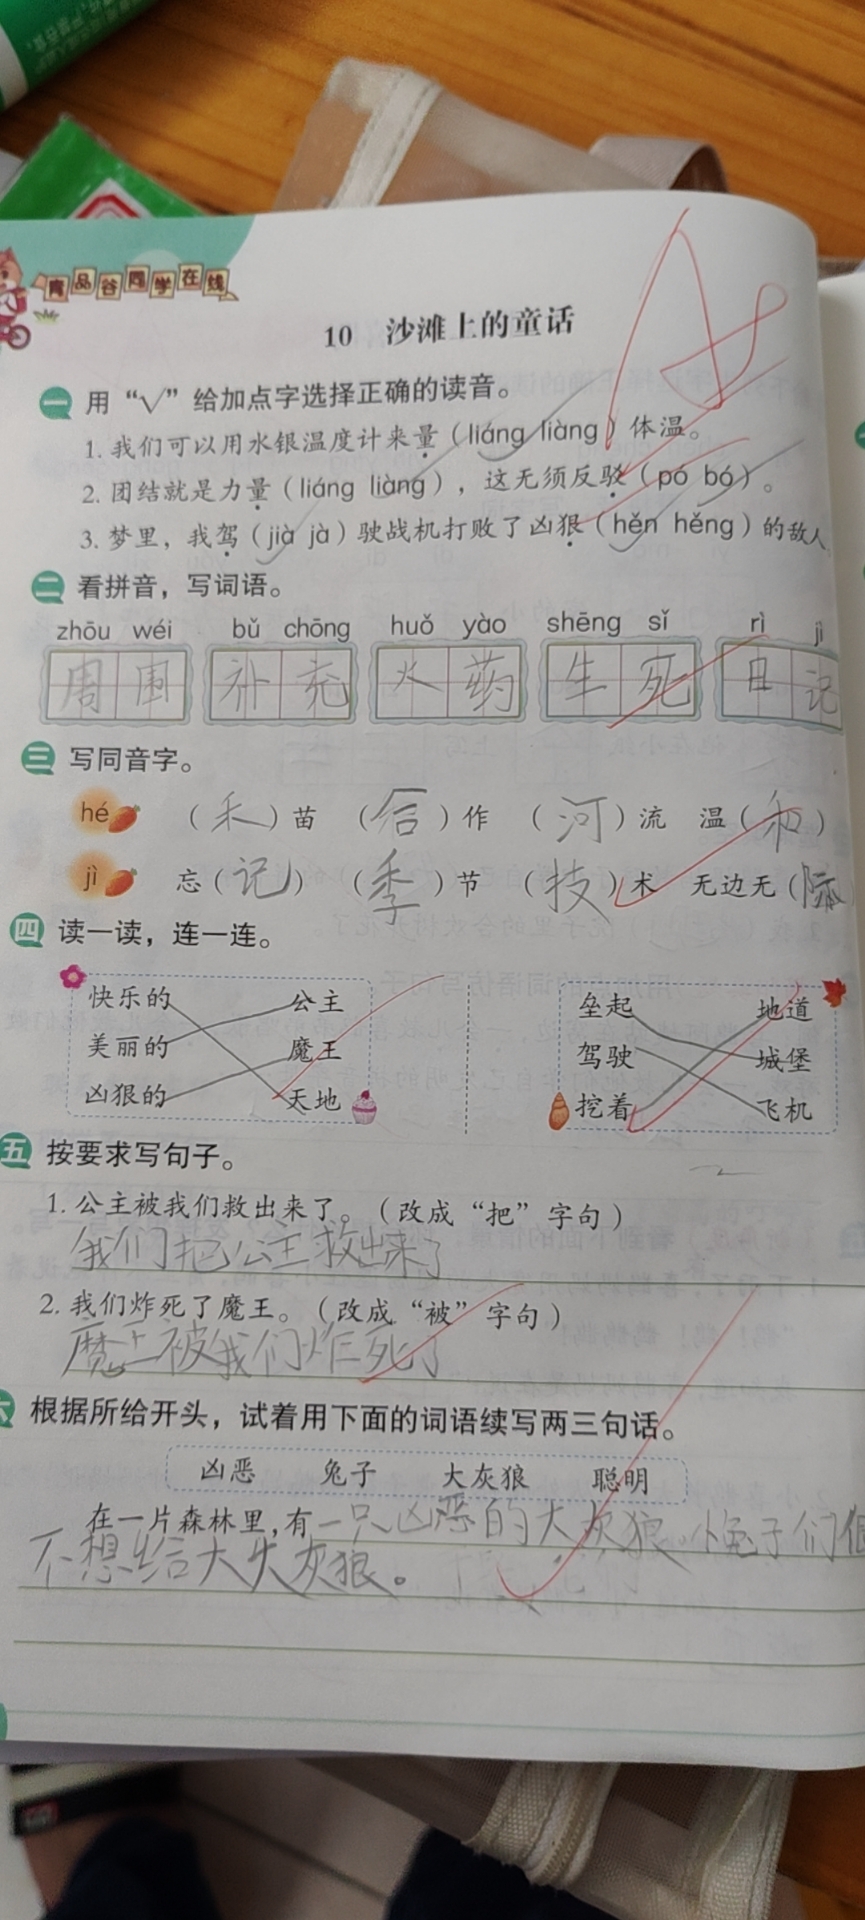 青品谷同学在线
10 沙滩上的童话
一 用“√”给加点字选择正确的读音。
1. 我们可以用水银温度计来量（liáng liàng）体温。
2. 团结就是力量（liáng liàng），这无须反驳（pó bó）。
3. 梦里，我驾（jià jà）驶战机打败了凶狠（hěn hěng）的敌人
二 看拼音，写词语。
zhōu wéi bǔ chōng huǒ yào shēng sǐ rì jì
周围 补充 火药 生死 日记
三 写同音字。
hé （禾）苗 （合）作 （河）流 温（和）
jì 忘（记） （季）节 （技）术 无边无（际）
四 读一读，连一连。
快乐的 公主 垒起 地道
美丽的 魔王 驾驶 城堡
凶狠的 天地 挖着 飞机
五 按要求写句子。
1. 公主被我们救出来了。（改成“把”字句）
我们把公主救出来了
2. 我们炸死了魔王。（改成“被”字句）
魔王被我们炸死了
六 根据所给开头，试着用下面的词语续写两三句话。
凶恶 兔子 大灰狼 聪明
在一片森林里，有一只凶恶的大灰狼。小兔子们很
不想给大灰狼。